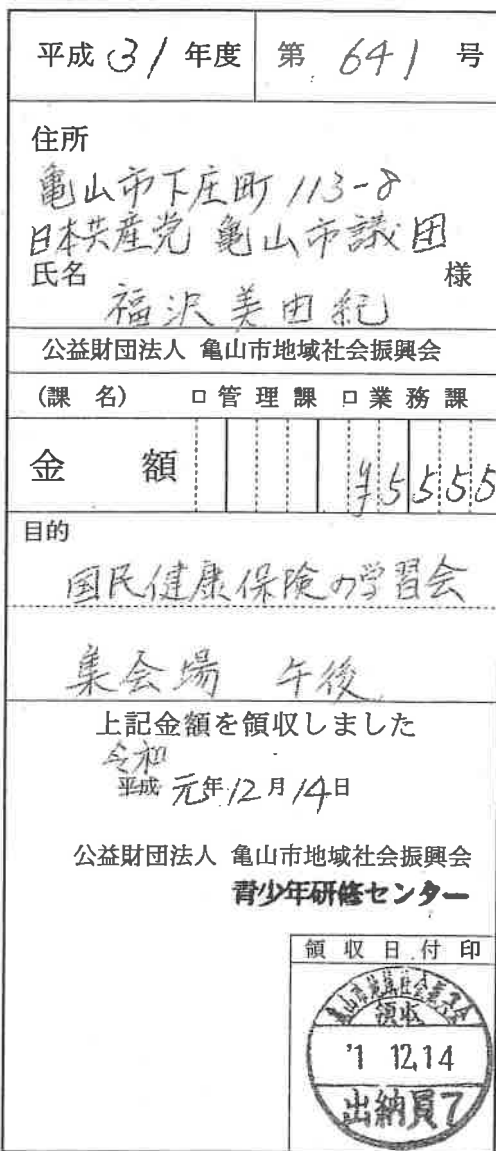 平成 31 年度 第 641 号
住所
亀山市下庄町 113-8
日本共産党 亀山市議団
氏名 様
福沢美由紀
公益財団法人 亀山市地域社会振興会
(課 名) □管理課 □業務課
金 額 ¥5555
目的
国民健康保険の学習会
集会場 午後
上記金額を領収しました
令和
平成 元年12月14日
公益財団法人 亀山市地域社会振興会
青少年研修センター
領収日付印
領収
'1 12.14
出納員7